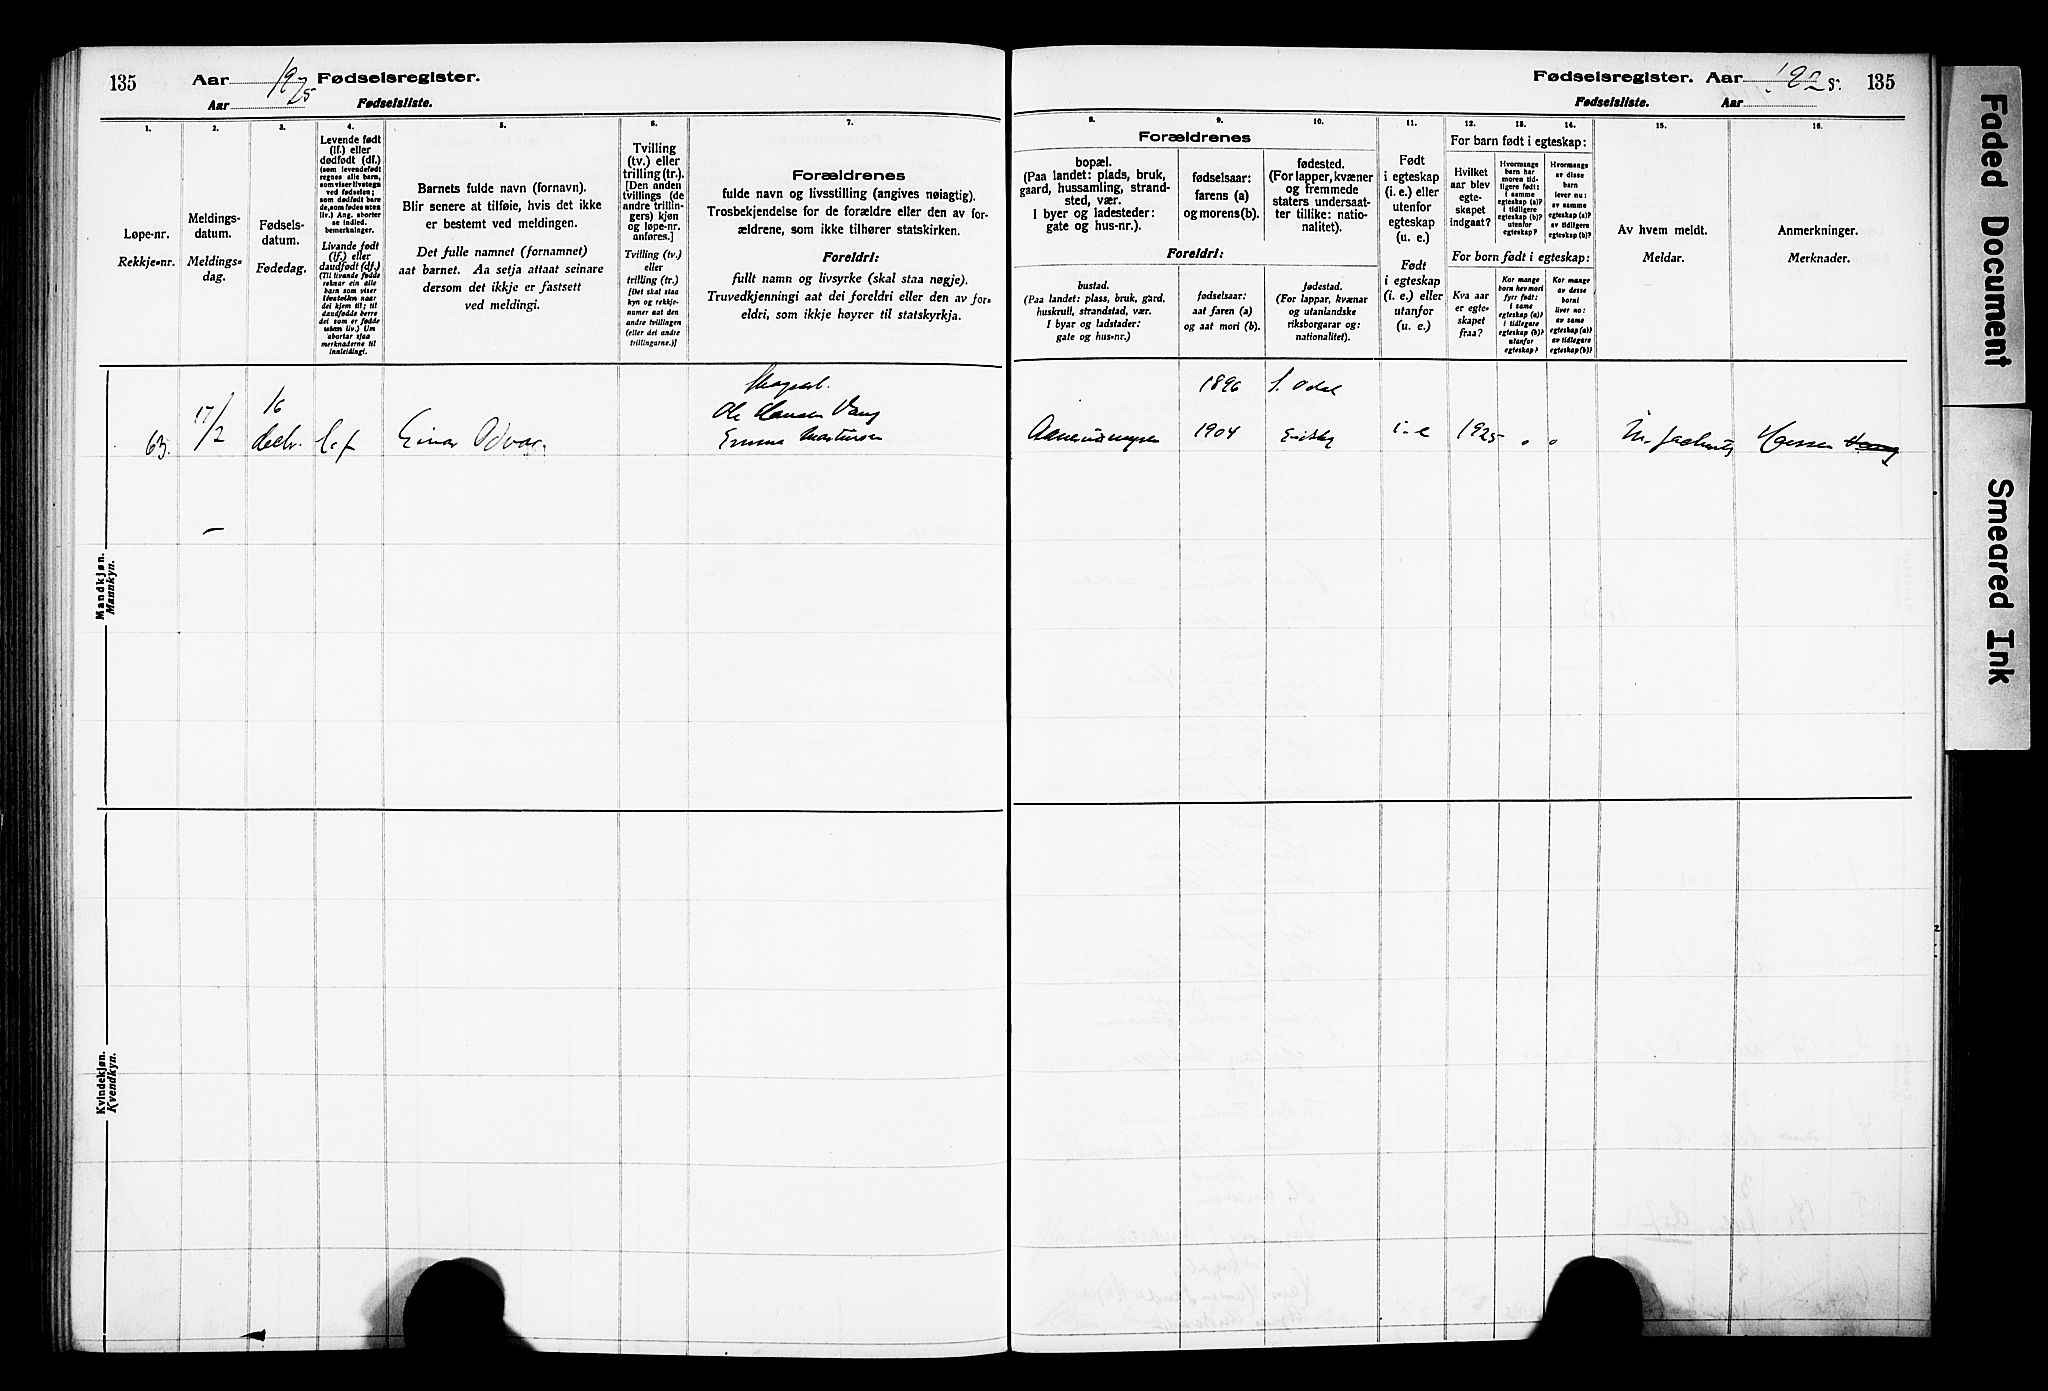 135
Aar 1925 Fødselsregister.
Aar Fødselsliste.
1.
2.
3.
4.
5.
6.
7.
Løpe-nr.
Rekkje-nr.
Meldings-
datum.
Meldings-
dag.
Fødsels-
datum.
Fødedag.
Levende født
(lf.) eller
dødfødt (df.)
(som levendefødt
regnes alle barn,
som viser livstegn
ved fødselen;
som dødfødt bare
de, som fødes uten
liv.) Ang. aborter
se indled.
bemerkninger.
Livande født
(lf.) eller
daudfødt (df.)
(Til livande fødde
reknar ein alle
barn som viser
livsteikn naar
dei kjem til; til
daudfødde berre
dei som er fødde
utan liv.) Um
abortar sjaa
merknaderne til
innleidingi.
Barnets fulde navn (fornavn).
Blir senere at tilføie, hvis det ikke
er bestemt ved meldingen.
Det fulle namnet (fornamnet)
aat barnet. Aa setja attaat seinare
dersom det ikkje er fastsett
ved meldingi.
Tvilling
(tv.) eller
trilling (tr.).
[Den anden
tvillings (de
andre trillin-
gers) kjøn
og løpe-nr.
anføres.]
Tvilling (tv.)
eller
trilling (tr.)
[Det skal staa
kyn og rekkje-
numer aat den
andre tvillingen
(eller dei andre
trillingarne.)]
Forældrenes
fulde navn og livsstilling (angives nøiagtig).
Trosbekjendelse for de forældre eller den av for-
ældrene, som ikke tilhører statskirken.
Foreldri:
fullt namn og livsyrke (skal staa nøgje).
Truvedkjenningi aat dei foreldri eller den av for-
eldri, som ikkje høyrer til statskyrkja.
Mandkjøn.
Mannkyn.
63.
17/2
16
decbr.
l. f
Einar Odvar
Ole Hansen Vang
Emma Martinsen
Kvindekjøn.
Kvendkyn.
Fødselsregister. Aar 1925. 135
Fødselsliste. Aar
8.
9.
10.
11.
12.
13.
14.
15.
16.
Forældrenes
bopæl.
(Paa landet: plads, bruk,
gaard, hussamling, strand-
sted, vær.
I byer og ladesteder:
gate og hus-nr.).
fødselsaar:
farens (a)
og morens (b).
fødested.
(For lapper, kvæner
og fremmede
staters undersaat-
ter tillike: natio-
nalitet).
Foreldri:
bustad.
(Paa landet: plass, bruk, gard,
huskrull, strandstad, vær.
I byar og ladstader:
gate og hus-nr.)
fødselsaar:
aat faren (a)
og aat mori (b).
fødestad.
(For lappar, kvænar
og utanlandske
riksborgarar og:
nationalitet).
Født
i egteskap
(i. e.) eller
utenfor
egteskap
(u. e.)
Født
i egteskap
(i. e.) eller
utanfor
(u. e.)
For barn født i egteskap:
Hvilket
aar blev
egte-
skapet
indgaat?
Hvormange
barn har
moren tid-
ligere født:
i samme
egteskap (a)?
i tidligere
egteskap (b)?
utenfor
egteskap?
Hvormange
av disse
barn
lever nu:
av samme
egteskap (a)?
av tidligere
egteskap (b)?
For born født i egteskap:
Kva aar
er egte-
skapet
fraa?
Kor mange
born hev mori
fyrr født:
i same
egteskap (a)?
i tidlegare
egteskap (b)?
utanfor
egteskap?
Kor mange
av desse
borni
liver no:
av same
egteskap (a)?
av tidlegare
egteskap (b)?
Av hvem meldt.
Meldar.
Anmerkninger.
Merknader.
1896
S. Odal
1904
i-e
1925
Hansen Vang
Faded Document
Smeared Ink